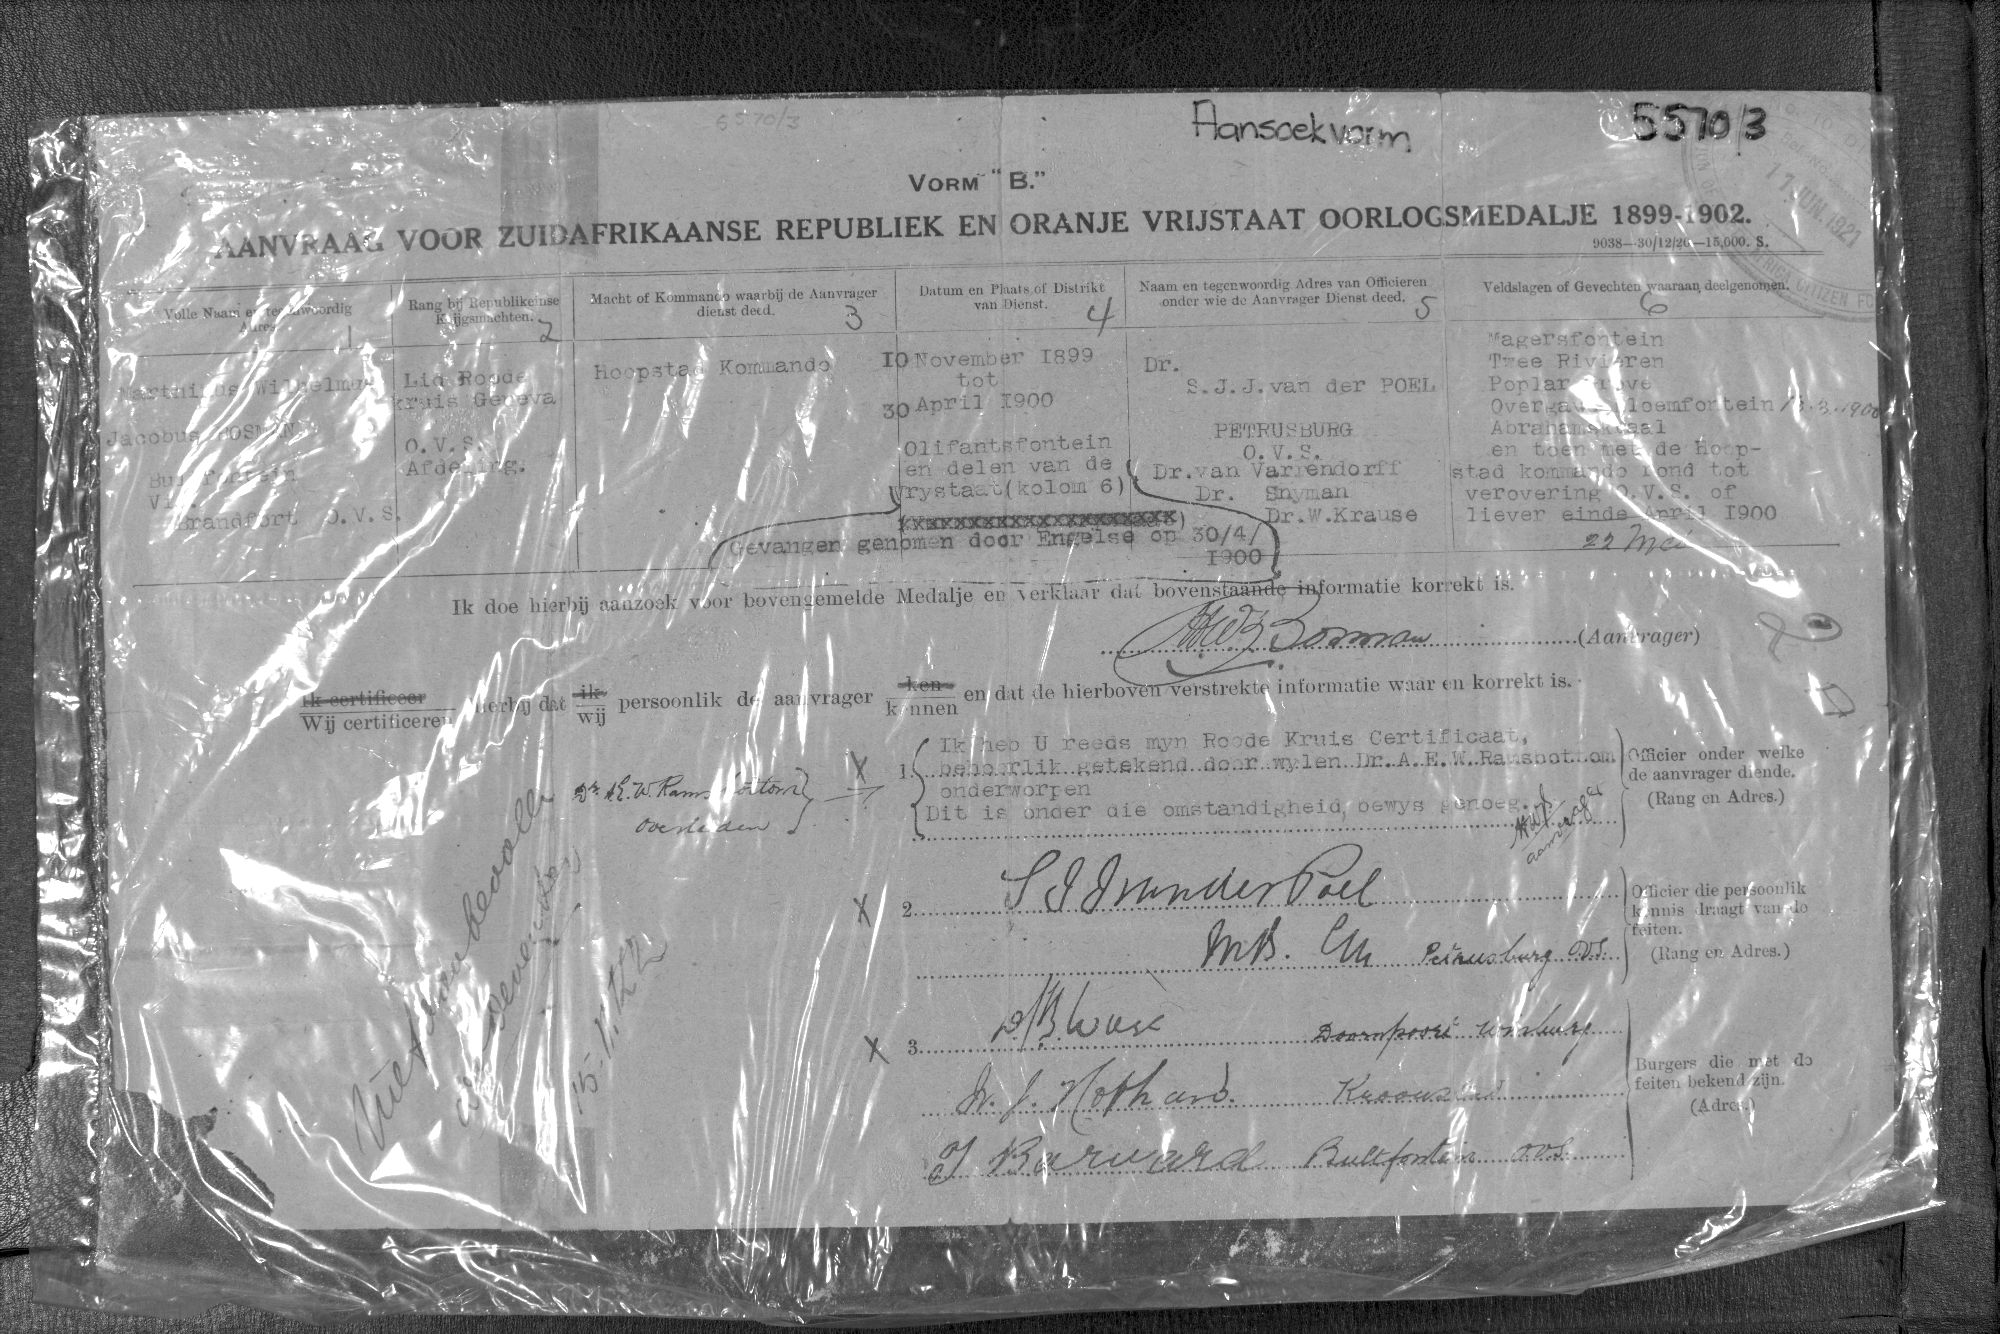 5570/3
Aansoekvorm
5570/3
17 JUN. 1921
CITIZEN
VORM "B."
AANVRAAG VOOR ZUIDAFRIKAANSE REPUBLIEK EN ORANJE VRIJSTAAT OORLOGSMEDALJE 1899-1902.
9038—30/12/20—15,000. S.
Volle Naam en tegenwoordig
Adres.
1
Rang bij Republikeinse
Krijgsmachten.
2
Macht of Kommando waarbij de Aanvrager
dienst deed.
3
Datum en Plaats of Distrikt
van Dienst.
4
Naam en tegenwoordig Adres van Officieren
onder wie de Aanvrager Dienst deed.
5
Veldslagen of Gevechten waaraan deelgenomen.
6
Jacobus BOSMAN
Brandfort O.V.S.
Lid Roode
kruis Geneva
O.V.S.
Afdeling.
Hoopstad Kommando
10 November 1899
tot
30 April 1900
Olifantsfontein
en delen van de
Vrystaat(kolom 6)
Gevangen genomen door Engelse op 30/4/
1900
Dr.
S.J.J.van der POEL
PETRUSBURG
O.V.S.
Dr.van Varrendorff
Dr. Snyman
Dr.W.Krause
Magersfontein
Twee Rivieren
Poplar Grove
Overgave Bloemfontein 13.3.1900
Abrahamskraal
en toen met de Hoop-
stad kommando rond tot
verovering O.V.S. of
liever einde April 1900
22 Mei
Ik doe hierbij aanzoek voor bovengemelde Medalje en verklaar dat bovenstaande informatie korrekt is.
Bosman (Aanvrager)
Ik certificeer
Wij certificeren hierbij dat ik
wij persoonlik de aanvrager ken
kennen en dat de hierboven verstrekte informatie waar en korrekt is.
Dr A.E.W. Ramsbottom
overleden
X
1.
Ik heb U reeds myn Roode Kruis Certificaat,
behoorlik getekend door wylen Dr.A.E.W.Ramsbottom
onderworpen
Dit is onder die omstandigheid, bewys genoeg.
aanvrager
Officier onder welke
de aanvrager diende.
(Rang en Adres.)
X
2. S J J van der Poel
M.B. Ch Petrusburg O.V.S.
Officier die persoonlik
kennis draagt van de
feiten.
(Rang en Adres.)
X
3. Doornpoort Winburg
Kroonstad
Barnard Bultfontein O.V.S.
Burgers die met de
feiten bekend zijn.
(Adres.)